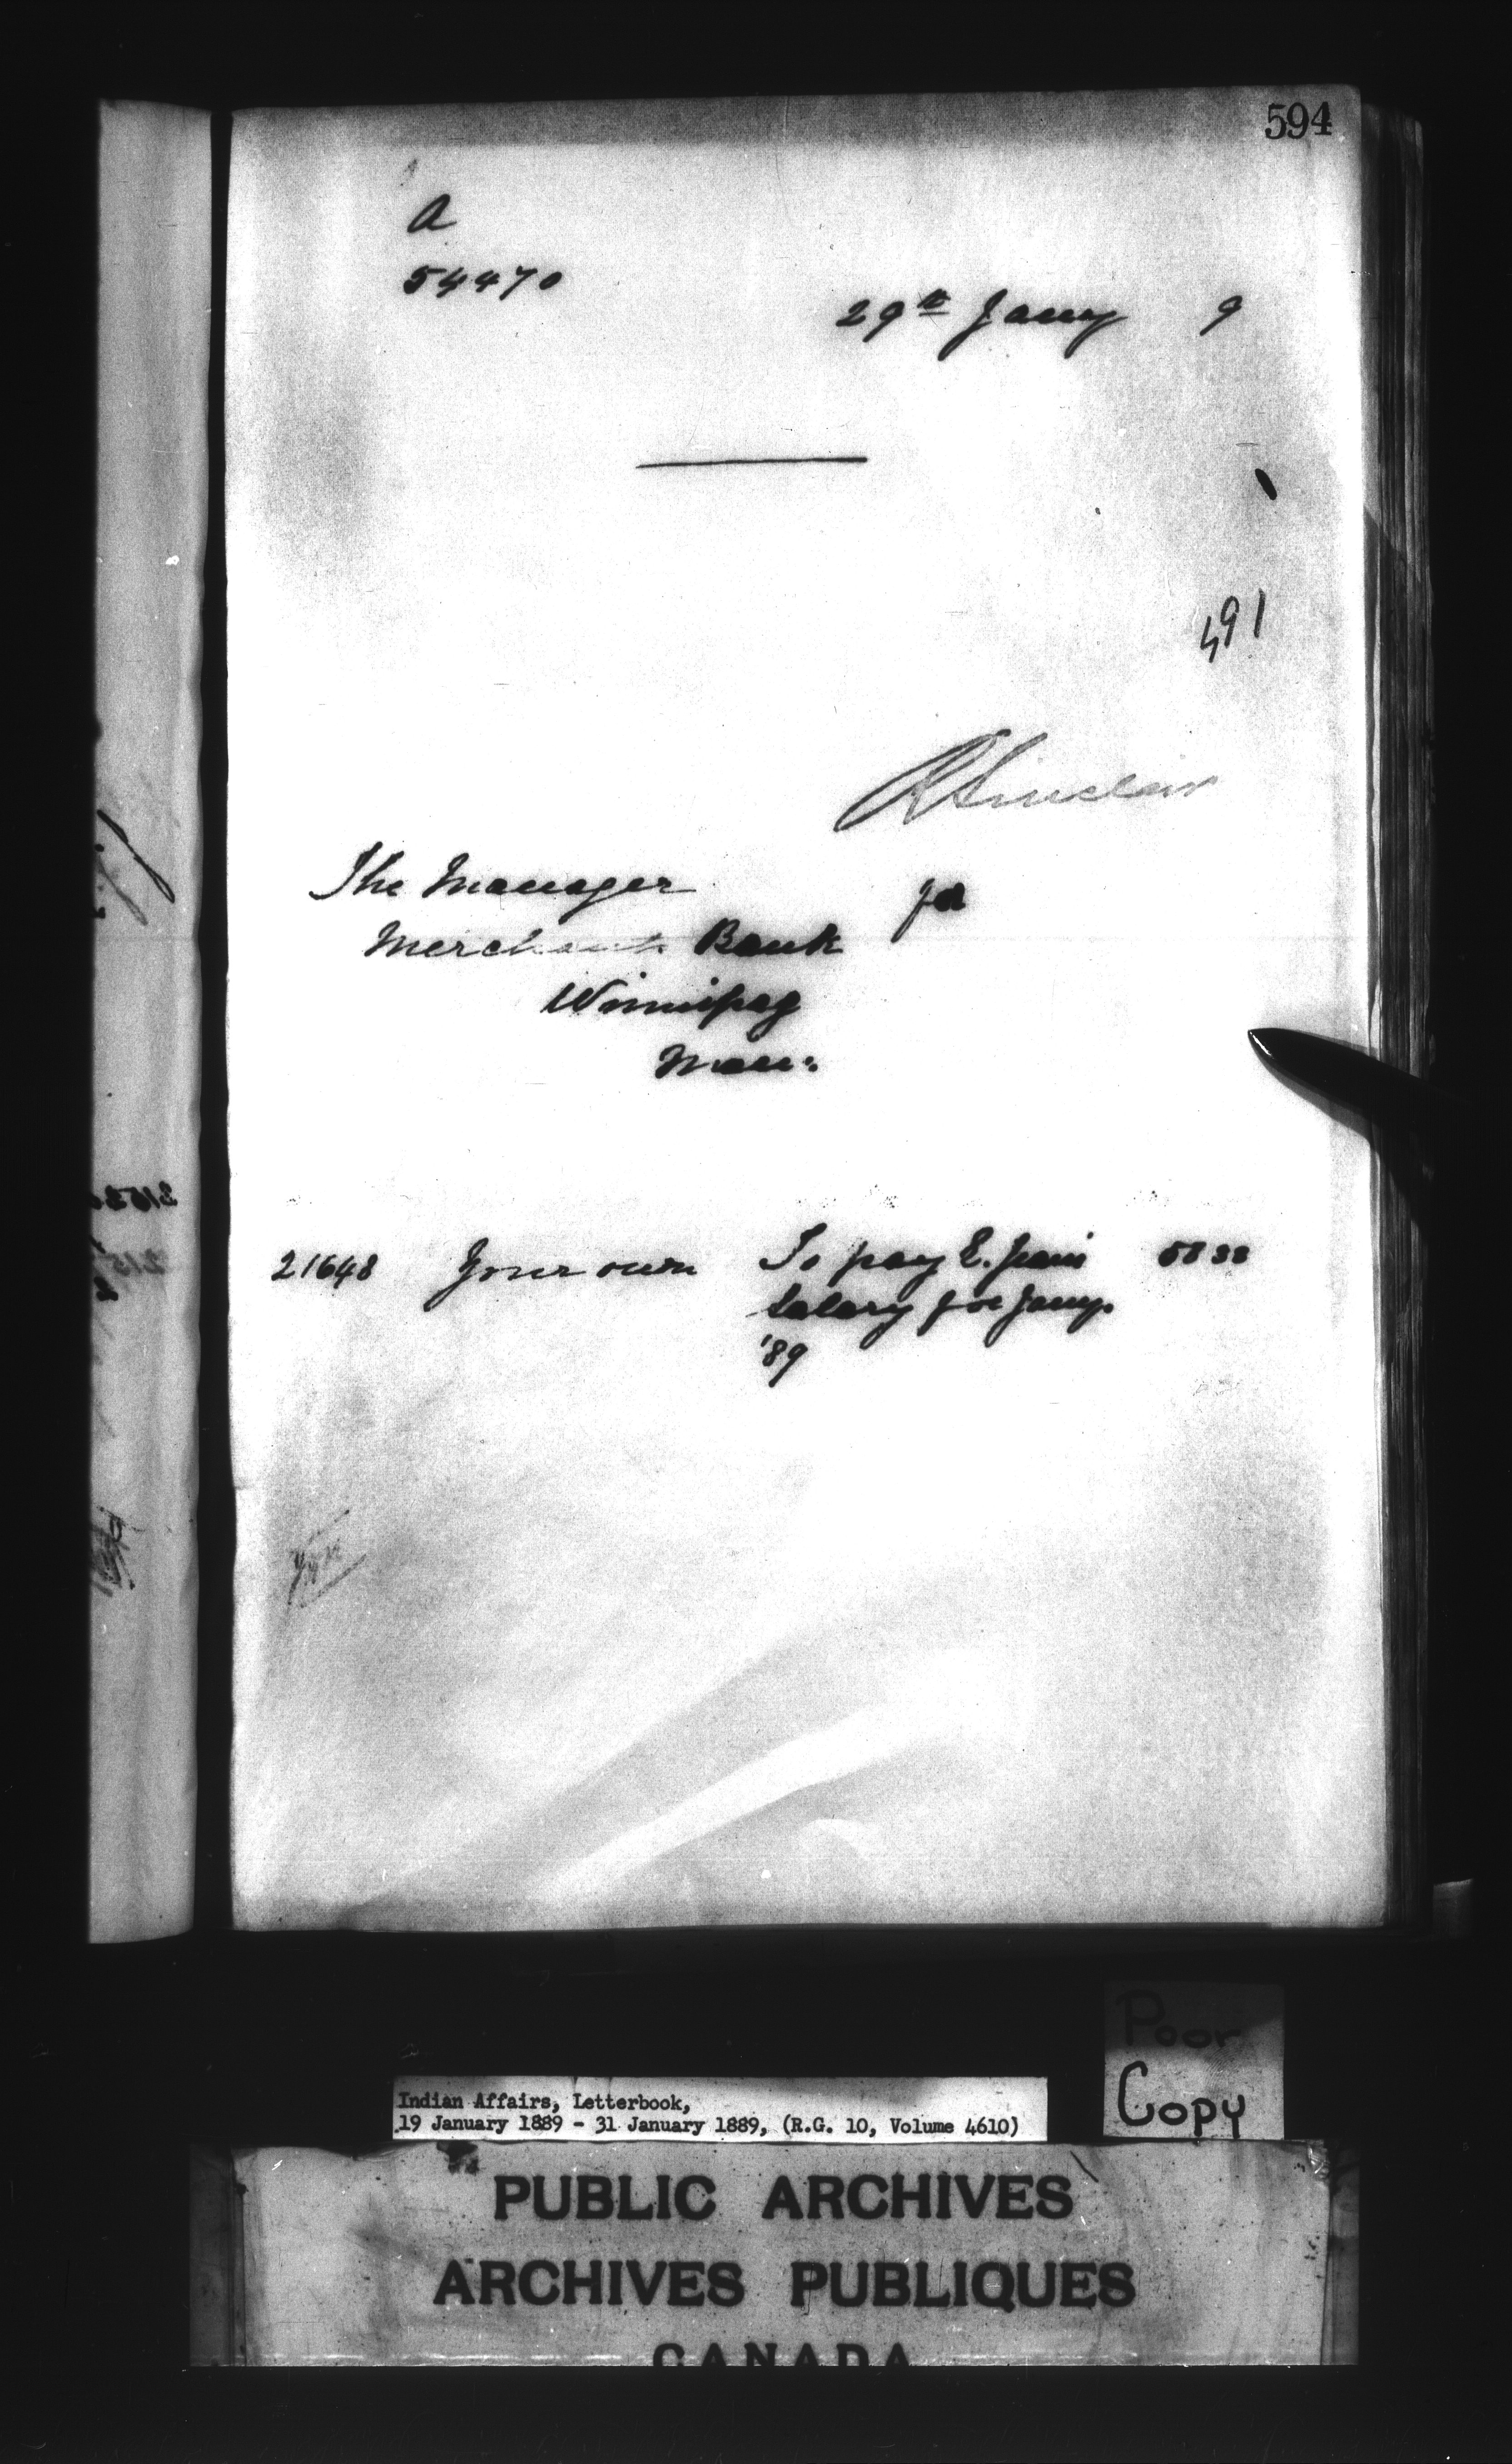 594
A
54470
29th Jany 9
491
R Sinclair
The Manager
for
Merchants Bank
Winnipeg
Man:
21648 Your own To pay E. Jean 58 33
Salary for Jany.
'89
Poor
Copy
Indian Affairs, Letterbook,
19 January 1889 - 31 January 1889, (R.G. 10, Volume 4610)
PUBLIC ARCHIVES
ARCHIVES PUBLIQUES
CANADA